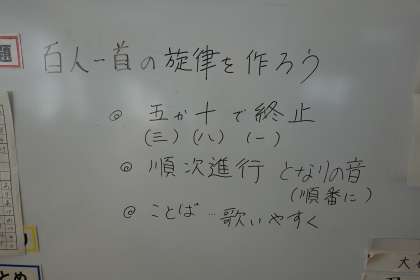 題
百人一首の旋律を作ろう
◎ 五か十で終止
(三)(八)(一)
◎ 順次進行 となりの音
(順番に)
◎ ことば…歌いやすく
とめ